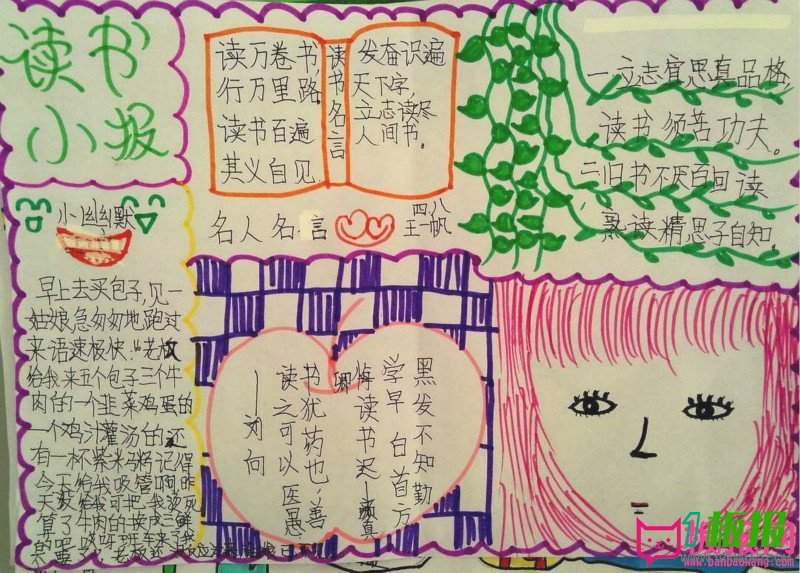 读书
小报
读万卷书,
行万里路
读书百遍
其义自见.
读书名言
发奋识遍
天下字,
立志读尽
人间书.
名人名言
西八
王一帆
一立志宜思真品格,
读书须苦功夫。
二旧书不厌百回读
熟读精思子自知.
小幽默
早上去买包子,见一
姑娘急匆匆地跑过
来语速极快:“老板
给我来五个包子三个牛
肉的一个韭菜鸡蛋的
一个鸡汁灌汤的还
有一杯紫米粥记得
今天给我吸管啊昨
天没给我可把我烫死
算了牛肉的换成三鲜
的
班车来了我
黑发不知勤
学早 白首方
悔读书迟——颜真
卿
读书犹药也,善
读之可以医愚
——刘向
板报
www.banbaowang.com